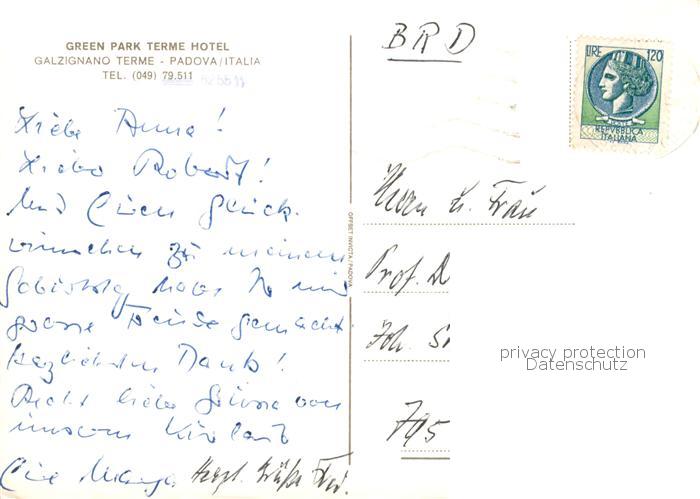 GREEN PARK TERME HOTEL
GALZIGNANO TERME - PADOVA/ITALIA
TEL. (049) 79.511
Liebe Anna!
Lieber Robert!
Mit Euren Glück-
wünschen zu meinem
habt Ihr mir
grosse Freude gemacht.
Herzlichsten Dank!
Recht liebe Grüsse von
unserem
Herzl. Grüße
OFFSET INVICTA/PADOVA
BRD
LIRE 120
POSTE
REPVBBLICA
ITALIANA
Herrn u. Frau
Prof. D
Joh.
795
privacy protection
Datenschutz